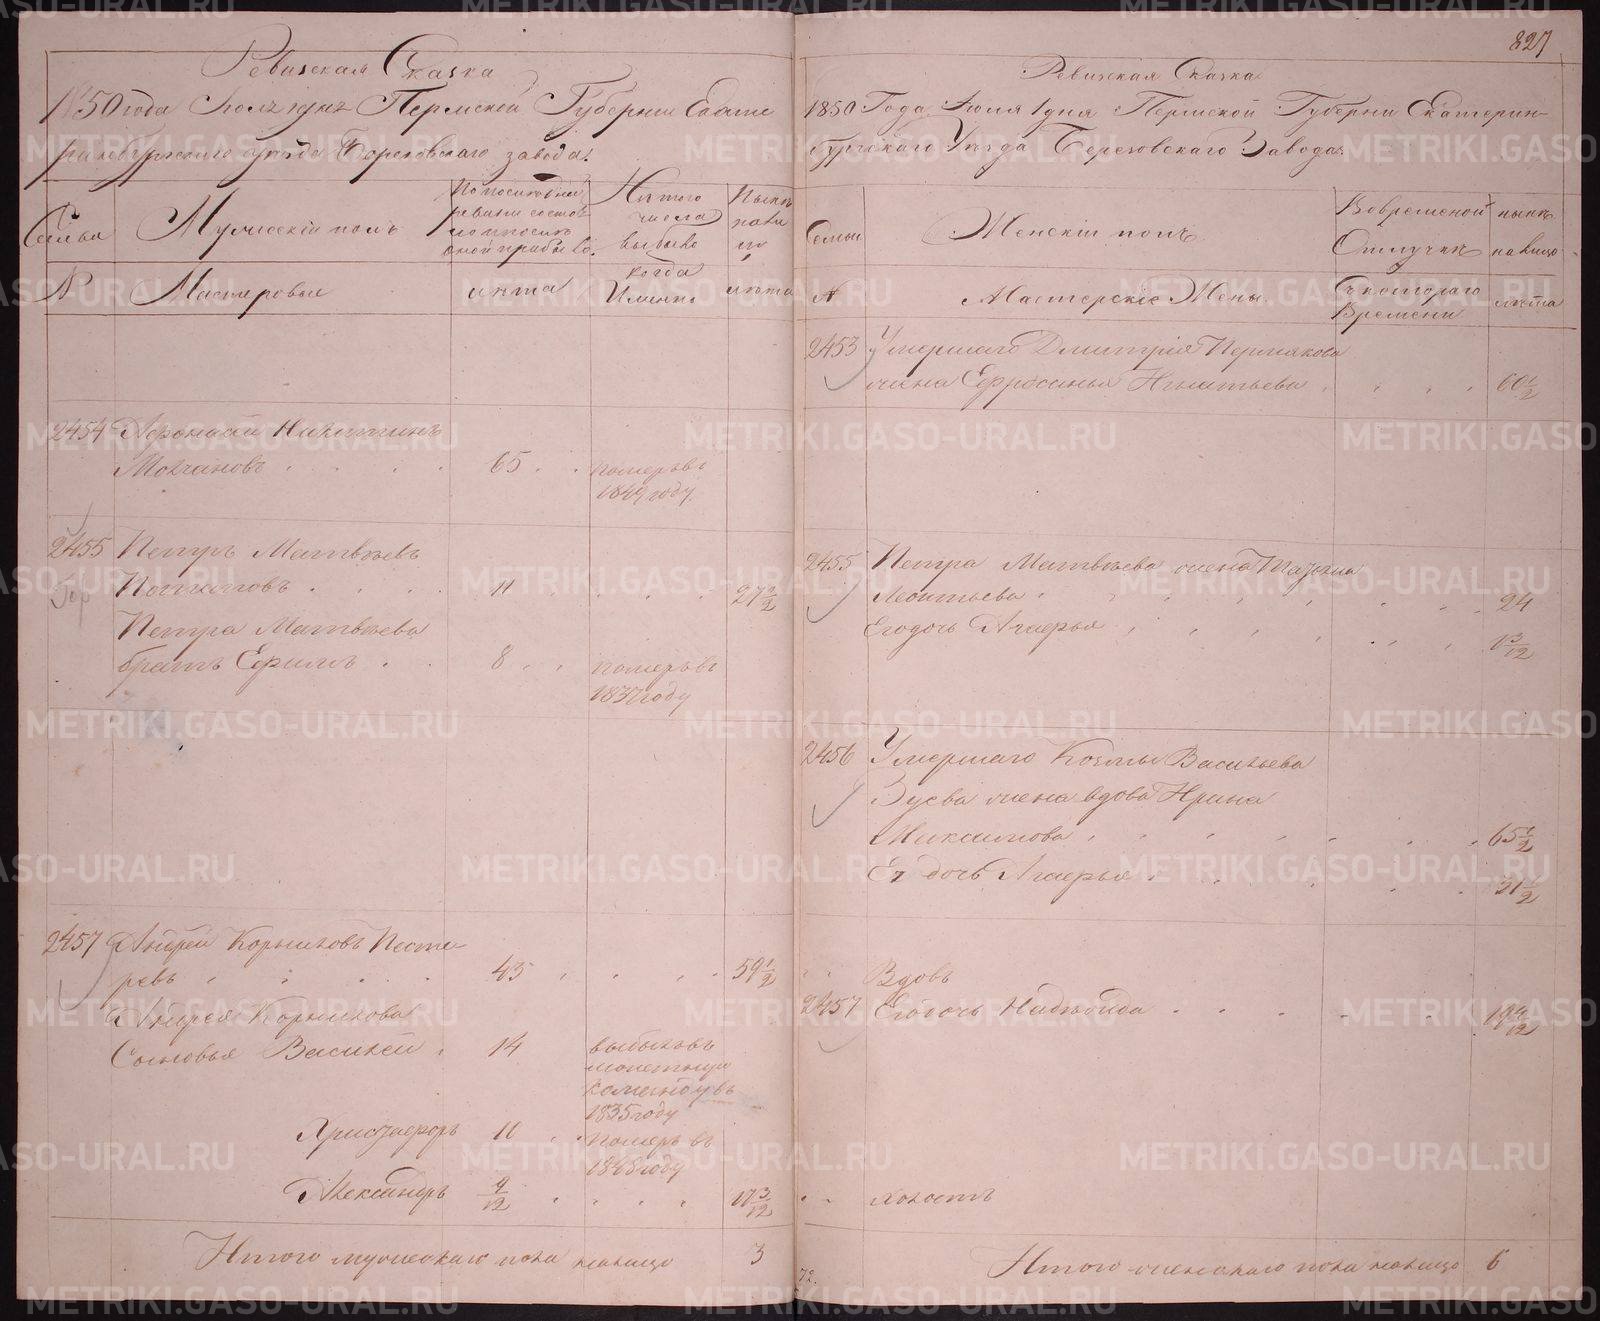 827
Ревизская Сказка
1850 года Июля 1 дня Пермской Губернии Екате
ринбургскаго уѣзда Березовскаго завода.
Семьи
Мужескій полъ
По последней
ревизіи состоя
ло и после
оной прибыло.
Изъ того
числа
выбыло
Нынѣ
на ли
цо
№
Мастеровые
лѣта
когда
Именно
лѣта
2454 Афонасій Никитинъ
Молчановъ 65 померъ въ
1849 году
2455 Петръ Матвѣевъ
Потаповъ 11 27 3/2
Петра Матвѣева
братъ Ефимъ 8 померъ въ
1837 году
2457 Андрей Корниловъ Песте
ревъ 43 59 1/2
Андрея Корнилова
Сыновья Василей 14 выбылъ въ
монетную
команду въ
1835 году
Христофоръ 11 померъ въ
1848 году
Александръ 9/12 17 3/12
Итого мужескаго пола налицо 3
Ревизская Сказка
1850 Года Июля 1 дня Пермской Губерніи Екатерин-
бургскаго Уѣзда Березовскаго Завода.
Семьи
Женскій полъ
Во временной
Отлучкѣ
нынѣ
на лицо
№
Мастерскіе Жены
Съ котораго
Времени
лѣта
2453 Умершаго Дмитрія Пермякова
жена Ефросинья Игнатьева 60 1/2
2455 Петра Матвѣева жена Татьяна
Леонтьева 24
Его дочь Агафья 1 3/12
2456 Умершаго Козмы Васильева
Зуева жена вдова Ирина
Максимова 65 1/2
Ея дочь Агафья 31 1/2
Вдовъ
2457 Его дочь Надежда 19 4/12
холостъ
Итого женскаго пола налицо 6
72.
METRIKI.GASO-URAL.RU